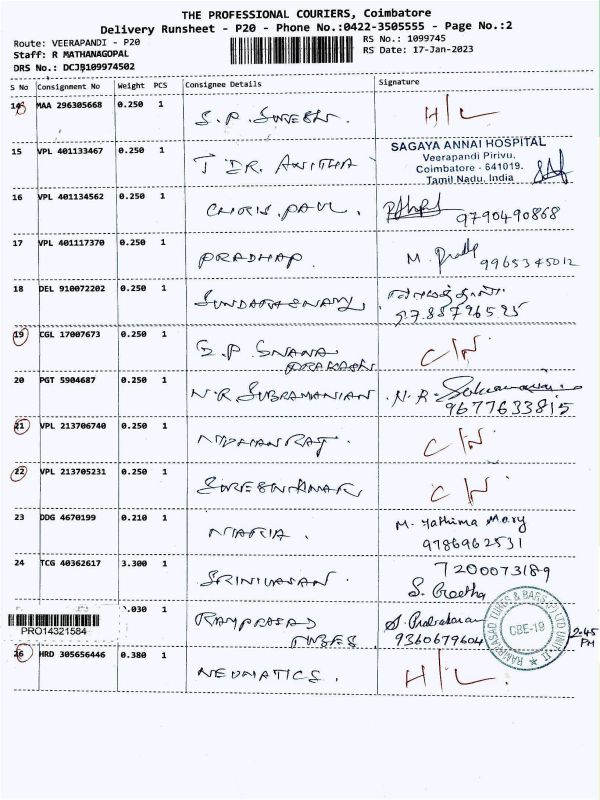 THE PROFESSIONAL COURIERS, Coimbatore
Delivery Runsheet - P20 - Phone No.:0422-3505555 - Page No.:2
Route: VEERAPANDI - P20
RS No.: 1099745
Staff: R MATHANAGOPAL
RS Date: 17-Jan-2023
DRS No.: DCJB109974502
S No Consignment No Weight PCS Consignee Details Signature
MAA 296305668 0.250 1 S.P. SURESH. H/L
15 VPL 401133467 0.250 1 J DR. ANITHA
SAGAYA ANNAI HOSPITAL
Veerapandi Pirivu,
Coimbatore - 641019.
Tamil Nadu, India
16 VPL 401134562 0.250 1 CHRIS. PAUL. 9790490868
17 VPL 401117370 0.250 1 PRADHAP. M. 9965345012
18 DEL 910072202 0.250 1
19 CGL 17007673 0.250 1 S.P GNANA C/N
PRAKASH
20 PGT 5904687 0.250 1 N.R SUBRAMANIAN N.R.
9677633815
21 VPL 213706740 0.250 1 C/N
22 VPL 213705231 0.250 1 C/N
23 DDG 4670199 0.210 1 MARIA. M. Fathima Mary
9786962531
24 TCG 40362617 3.300 1 SRINIVASAN. 7200073189
S. Geetha
PRO14321584
.030 1 RAMPRASAD S. Prabakaran
TUBES 9360679604
RAMPRASAD TUBES & BARS (P) LTD UNIT II
CBE-19
2:45
PM
26 HRD 305656446 0.380 1 NEUMATICS. H/L